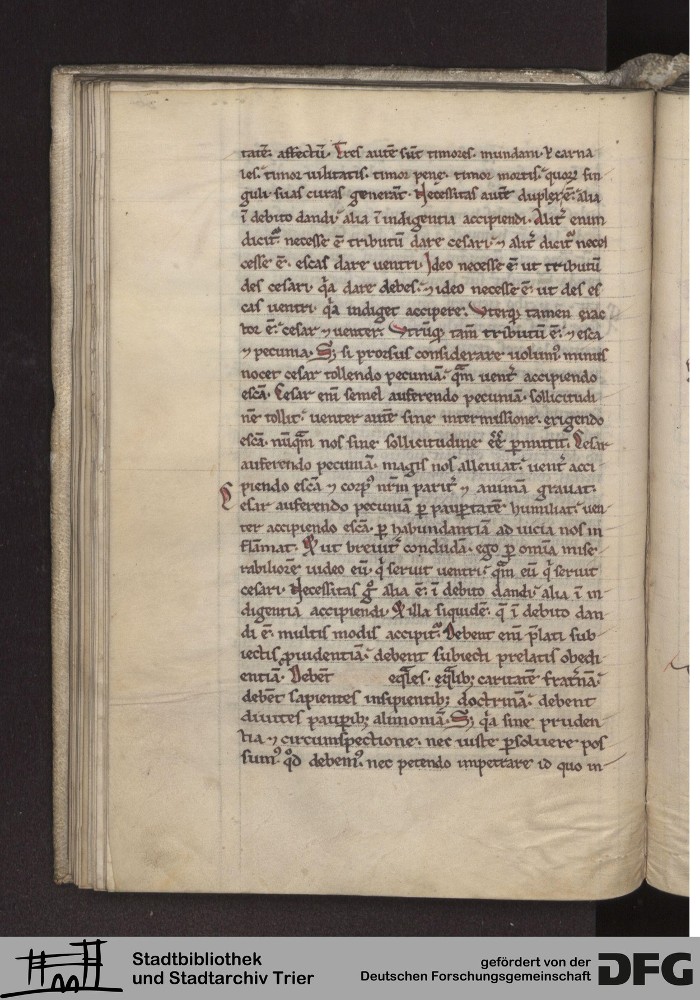 tatē. affectū. Tres autē sūt timores. mundani. ł carna
ies. timor uilitatis. timor pene. timor mortis. quoꝝ sin
guli suas curas generāt. Necessitas autē duplex ē. alia
ī debito dandi. alia ī indigentia accipiendi. Alit᷑ enim
dicit᷑. necesse ē tributū dare cesari. ⁊ alit᷑ dicit᷑ necel
cesse ē. escas dare uentri. Ideo necesse ē ut tributū
des cesari. q̄a dare debes. ⁊ ideo necesse ē. ut des es
cas uentri. q̄a indiget accipere. Uterq; tamen exac
tor ē. cesar ⁊ uenter. Utrūq; tam̄ tributū ē. ⁊ esca
⁊ pecunia. S; si prorsus considerare uolum᷒ minus
nocet cesar tollendo pecuniā. q̄m uent᷑ accipiendo
escā. Cesar eni semel auferendo pecuniā. sollicitudi
nē tollit. uenter autē sine intermissione. exigendo
escā. nūq̄m nos sine sollicitudine eē̄ p̄mittit. Cesar
auferendo pecuniā. magis nos alleuiat. uent᷑ acci
piendo escā ⁊ corp᷒ nr̄m parit᷑ ⁊ animā grauat.
Cesar auferendo pecuniā ꝑ paupertatē humiliat. uen
ter accipiendo escā. ꝑ habundantiā ad uicia nos in
flāmat. Et ut breuit᷑ concludā. ego ꝑ omīa mise
rabiliorē uideo eū. q̇ seruit uentri. q̄m eū q̇ seruit
cesari. Necessitas g̊ alia ē. ī debito dandi. alia ī in
digentia accipiendi. Et illa siquidē. q̄ ī debito dan
di ē. multis modis accipit᷑. Debent eni p̄lati sub
iectis ꝓuidentiā. debent subiecti prelatis obedi
entiā. Debēt eq̄les. eq̄lib; caritatē fratnā.
debēt sapientes insipientib; doctrinā. debent
diuites paupib; alimoniā. S; q̄a sine pruden
tia ⁊ circumspectione. nec iuste ꝑsoluere pos
sum᷒. qd̊ debem᷒. nec petendo impetrare id quo in
Stadtbibliothek
und Stadtarchiv Trier
gefördert von der
Deutschen Forschungsgemeinschaft
DFG